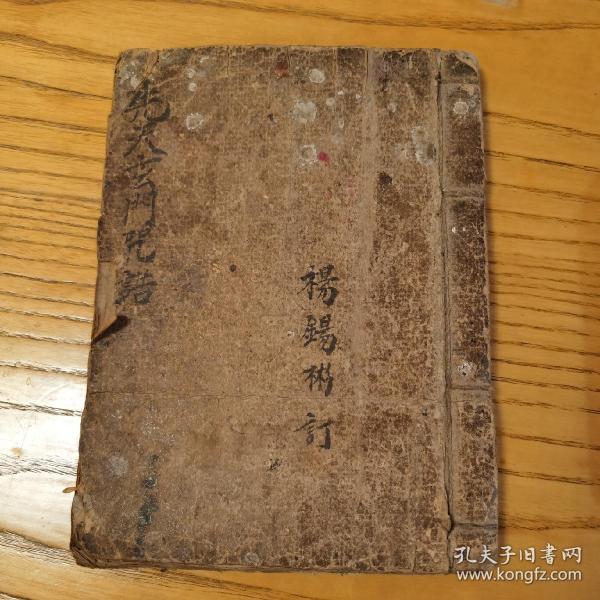 先天玄門咒語
楊錫彬訂
孔夫子旧书网
www.kongfz.com